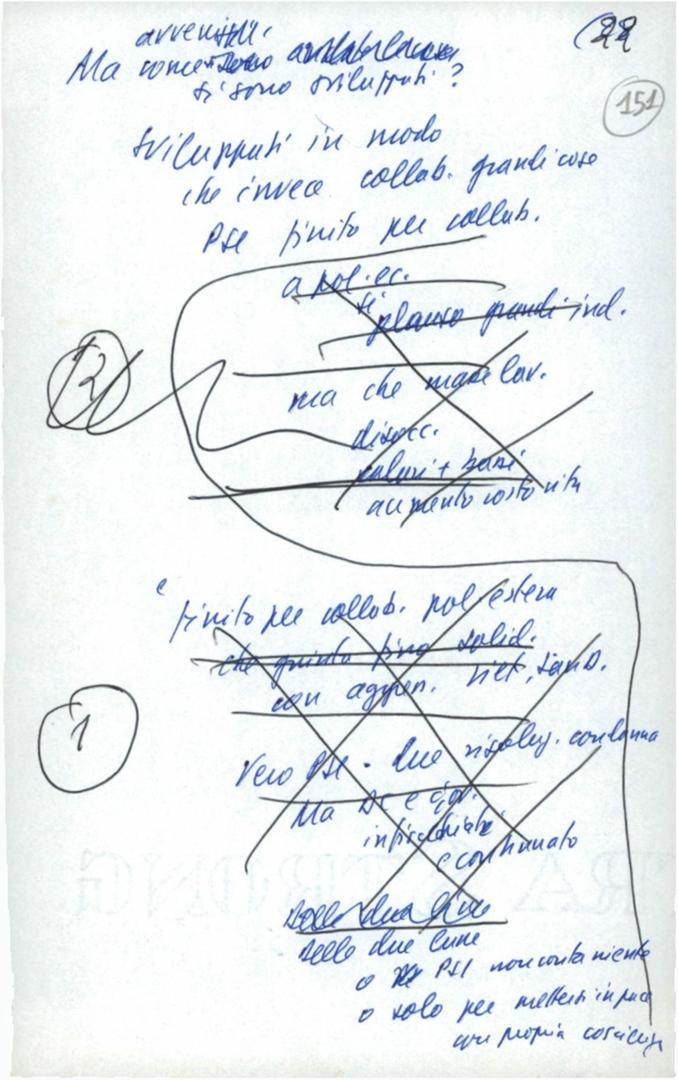 22
151
avvenuti.
Ma come sono
si sono sviluppati?
sviluppati in modo
che invece collab. grandi cose
PSI finito per collab.
a pol. ec.
si
plauso grandi ind.
2
ma che masse lav.
disocc.
salari + bassi
aumento costo vita
e
finito per collab. pol estera
che giunta fino solid.
con aggres. Viet, San D.
1
Vero PSI. due risoluz. condanna
Ma DC e gov.
infischiati
e continuato
Delle due
Delle due l'une
o PSI non conta niente
o solo per mettersi in pace
con propria coscienza